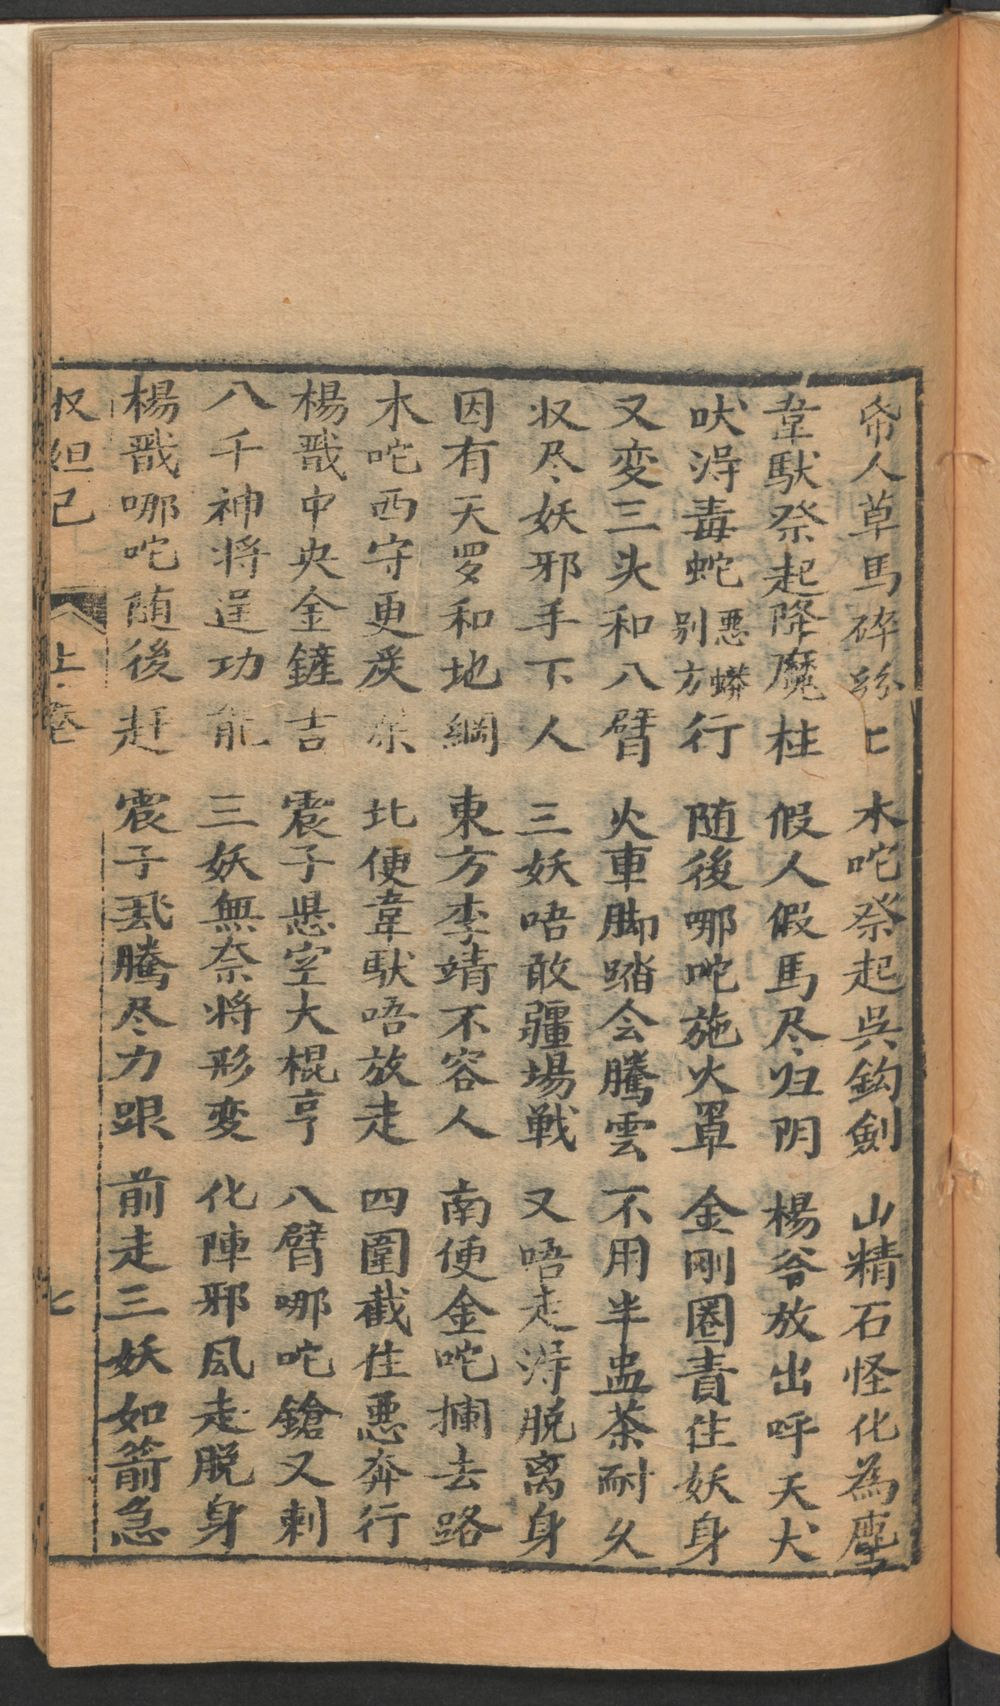 帋人草馬碎紛匕　木咤祭起吳鈎劍　山精石怪化為塵
韋馱祭起降魔柱　假人假馬尽归阴　楊爷放出哮天犬
吠淂毒蛇悪蟒别方行　随後哪咤施火罩　金刚圈責住妖身
又变三头和八臂　火車脚踏会騰雲　不用半盅茶耐久
収尽妖邪手下人　三妖唔敢疆場戦　又唔走淂脱离身
因有天罗和地網　東方李靖不容人　南便金咤攔去路
木咤西守更炭　北便韋馱唔放走　四圍截住悪奔行
楊戬中央金鏟吉　震子悬空大棍亨　八臂哪咤鎗又刺
八千神将逞功能　三妖無奈将形变　化陣邪风走脱身
楊戬哪咤随後赶　震子飛騰尽力跟　前走三妖如箭急
収妲己　上卷　七